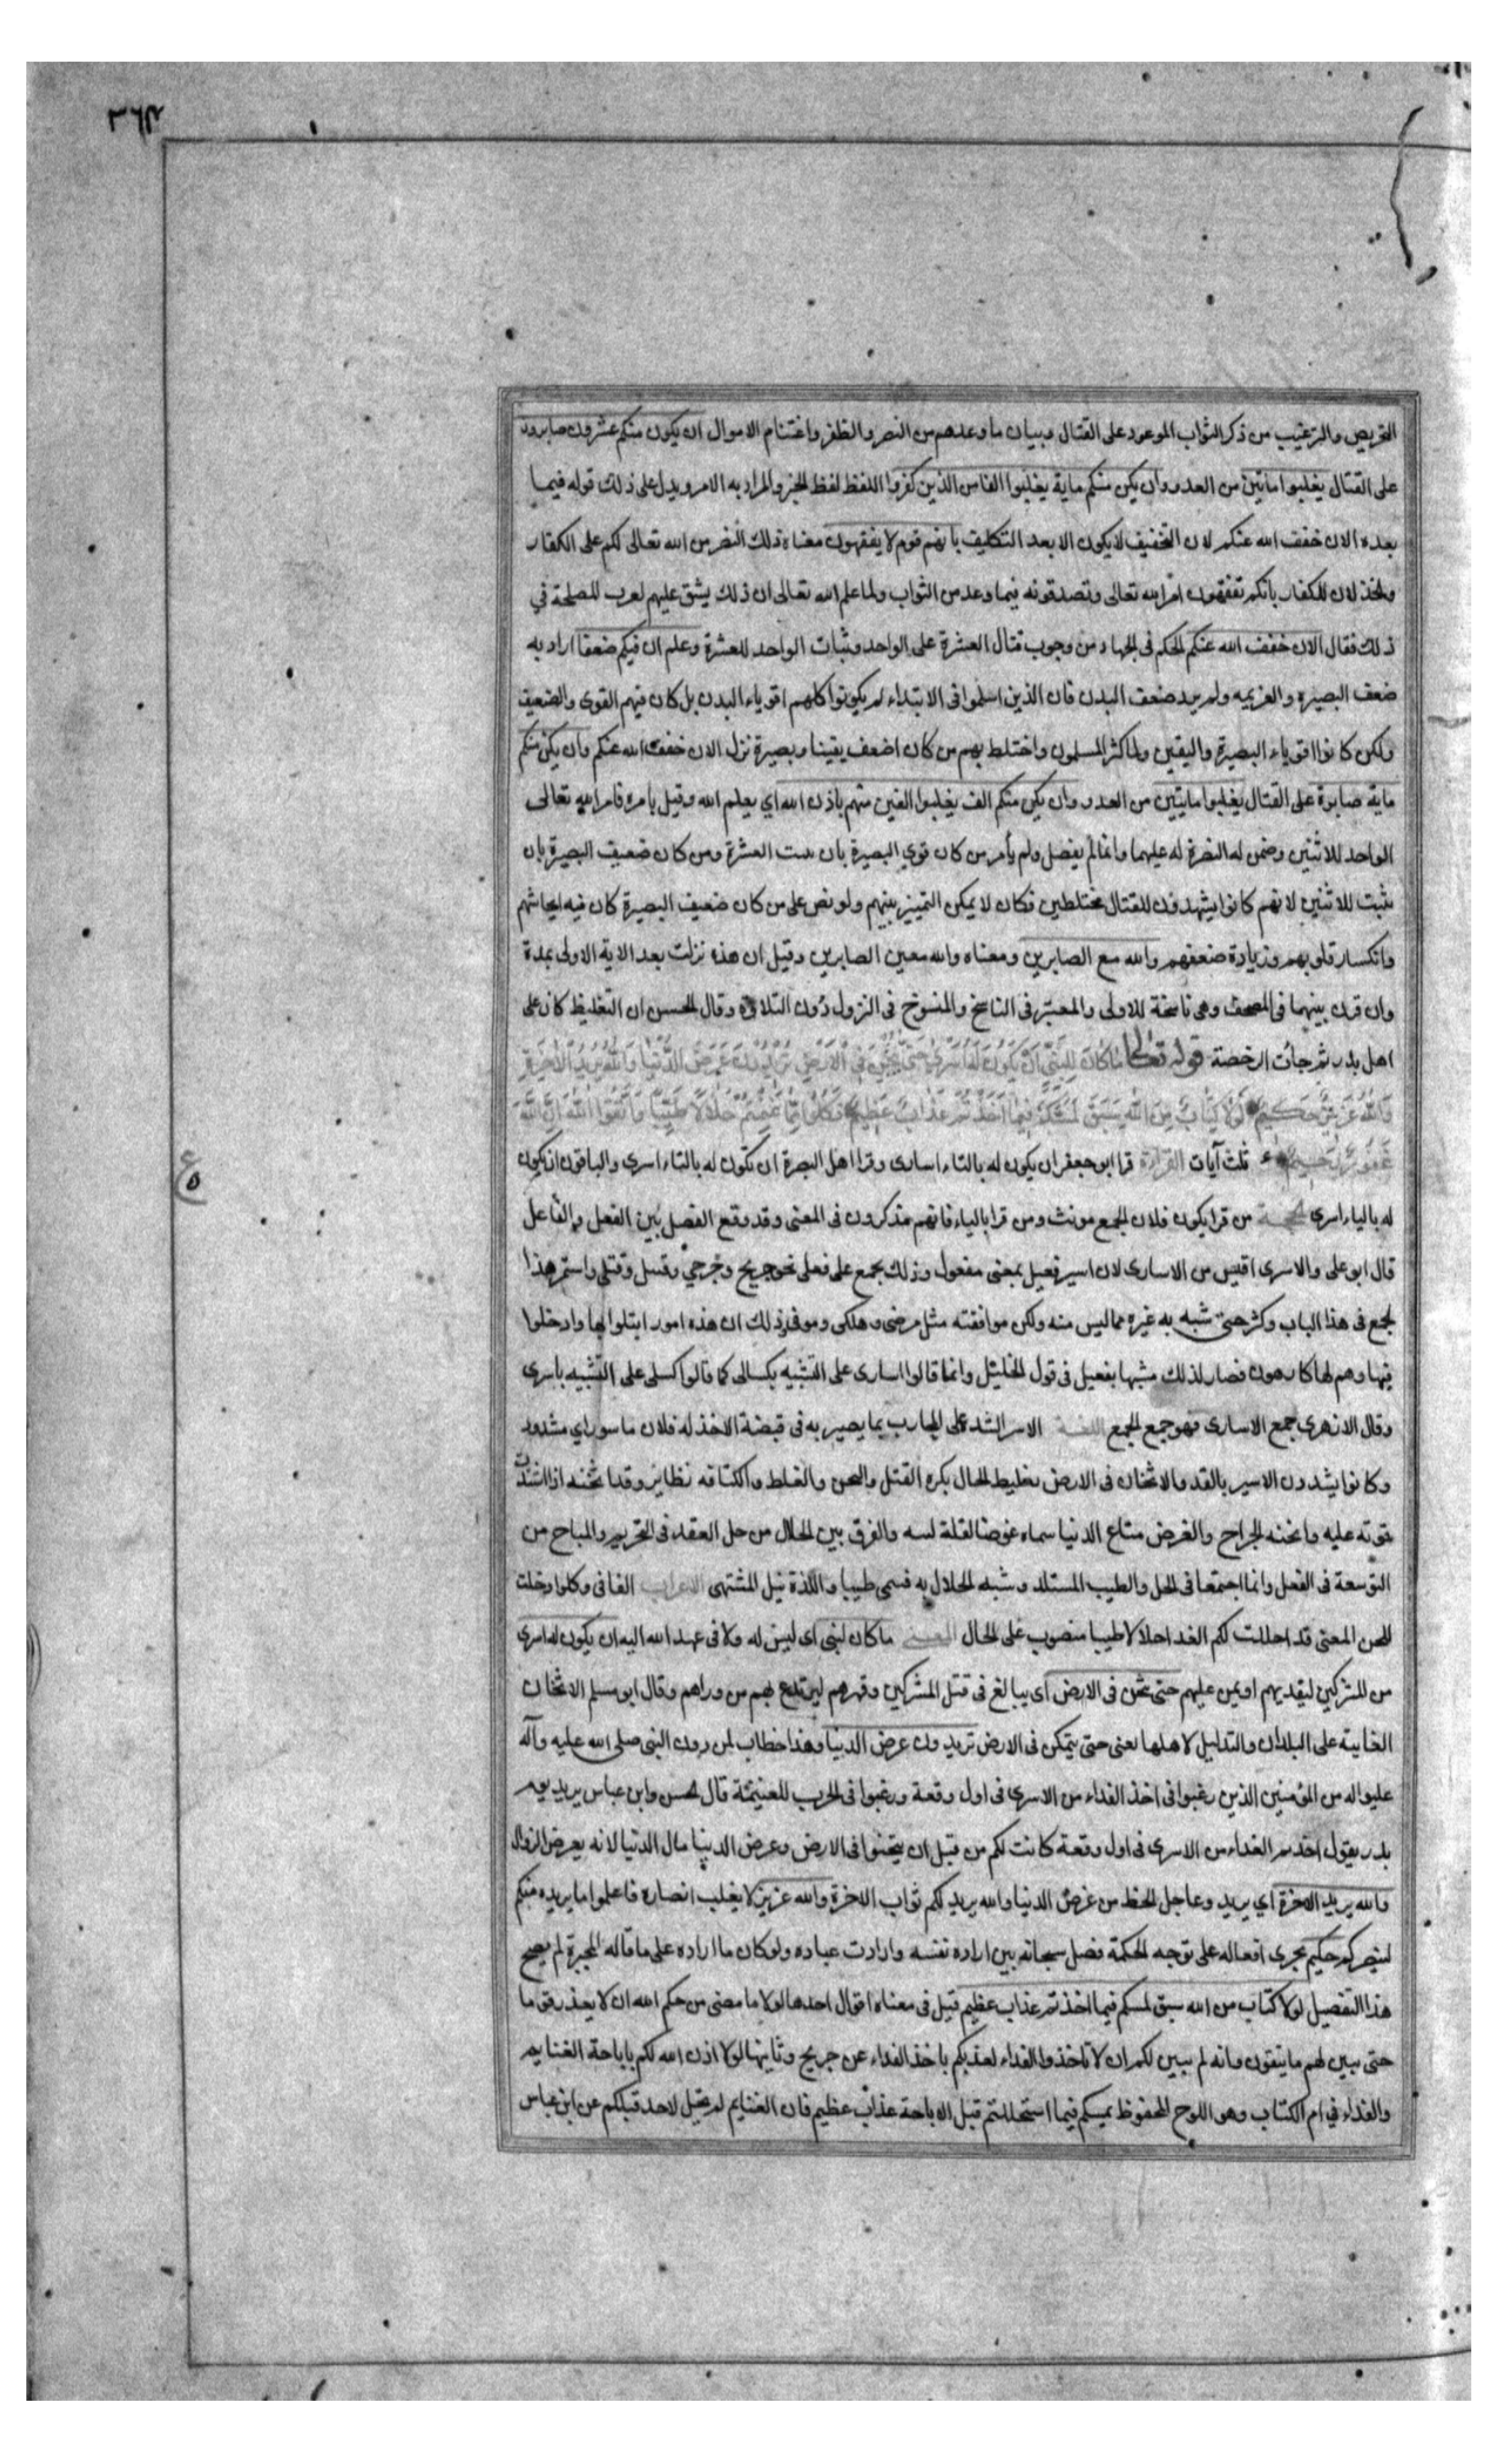 ٣٦٣
التحريص والترغيب من ذكر الثواب الموعود على القتال وبيان ما وعدهم من النصر والظفر واغتنام الاموال ان يكون منكم عشرون صابرون
على القتال يغلبوا مأتين من العدو وان يكن منكم ماية يغلبوا الفا من الذين كفروا اللفظ لفظ الخبر والمراد به الامر ويدل على ذلك قوله فيما
بعده الان خفف الله عنكم لان التخفيف لا يكون الا بعد التكليف بانهم قوم لا يفقهون معناه ذلك النصر من الله تعالى لكم على الكفار
والخذلان للكفار بانكم تفقهون امر الله تعالى وتصدقونه فيما وعد من الثواب ولما علم الله تعالى ان ذلك يشق عليهم المصلحة في
ذلك فقال الان خفف الله عنكم الحكم فى الجهاد من وجوب قتال العشرة على الواحد وثبات الواحد للعشرة وعلم ان فيكم ضعفا اراد به
ضعف البصيره والعزيمه ولم يرد ضعف البدن فان الذين اسلموا فى الابتداء لم يكونوا كلهم اقوياء البدن بل كان فيهم القوى والضعيف
ولكن كانوا اقوياء البصيرة واليقين ولما كثر المسلمون واختلط بهم من كان اضعف يقينا وبصيرة نزل الان خفف الله عنكم وان يكن منكم
ماية صابرة على القتال يغلبوا مايتين من العدو وان يكن منكم الف يغلبوا الفين منهم باذن الله اي بعلم الله وقيل بامره فامر الله تعالى
الواحد للاثنين وضمن له النصرة له عليهما وانما لم يفصل ولم يأمر من كان قوي البصيرة بان العشرة ومن كان ضعيف البصيرة بان
يثبت للاثنين لانهم كانوا يشهدون للقتال مختلطين فكان لا يمكن التمييز بينهم ولو نص على من كان ضعيف البصيرة كان فيه ايحاشهم
وانكسار قلوبهم وزيادة ضعفهم والله مع الصابرين ومعناه والله معين الصابرين وقيل ان هذه نزلت بعد الاية الاولى بمدة
وان قرن بينهما فى المصحف وهى ناسخة للاولى والمعتبر فى الناسخ والمنسوخ فى النزول دون التلاوة وقال الحسن ان التغليظ كان على
اهل بدر ثم جائت الرخصة قوله تعالى ما كان لنبى ان يكون له اسرى حتى يثخن فى الارض تريدون عرض الدنيا والله يريد الاخرة
والله عزيز حكيم لولا كتاب من الله سبق لمسكم فيما اخذتم عذاب عظيم فكلوا مما غنمتم حلالا طيبا واتقوا الله ان الله
غفور رحيم ثلث آيات القراءة قرا ابو جعفر ان يكون له بالتاء اسارى وقرا اهل البصرة ان تكون له بالتاء اسرى والباقون ان يكون
له بالياء اسرى الحجة من قرا يكون فلان الجمع مونث ومن قرا بالياء فانهم مذكرون فى المعنى وقد وقع الفصل بين الفعل والفاعل
قال ابو على والاسرى اقيس من الاسارى لان اسير فعيل بمعنى مفعول وذلك يجمع على فعلى نحو جريح وجرحي وقتيل وقتلى واستمر هذا
الجمع فى هذا الباب وكثر حتى شبه به غيره مما ليس منه ولكن موافقته مثل مرضى وهلكى وموتى ذلك ان هذه امور ابتلوا بها وادخلوا
فيها وهم لها كارهون فصار لذلك مشبها بفعيل فى قول الخليل وانما قالوا اسارى على التشبيه بكسالى كما قالوا كسلى على التشبيه باسرى
وقال الازهرى جمع الاسارى فهو جمع الجمع اللغة الاسر الشد على المحارب بما يصير به فى قبضة الاخذ له فلان ماسور اي مشدود
وكانوا يشدون الاسير بالقد والاثخان فى الارض تغليظ الحال بكره القتل والغلظ والكثافه نظاير وقد اثخنه اذا اشتدت
قوته عليه واثخنه الجراح والعرض متاع الدنيا سماه عرضا لقلة لبثه والفرق بين الحلال من حل العقد فى التحريم والمباح من
التوسعة فى الفعل وانما اجتمعا فى الحل والطيب المستلذ وشبه الحلال به فسمى طيبا واللذة نيل المشتهى الاعراب الفا فى وكلوا دخلت
المعنى قد احللت لكم الفدا حلالا طيبا منصوب على الحال المعنى ما كان لنبى اى ليس له ولا فى عهد الله اليه ان يكون له اسرى
من المشركين ليفديهم او يمن عليهم حتى يثخن فى الارض اى يبالغ فى قتل المشركين وقهرهم ليرتدع بهم من وراهم وقال ابو مسلم الاثخان
الغلبة على البلدان والتذليل لاهلها يعنى حتى يتمكن فى الارض تريدون عرض الدنيا وهذا خطاب لمن دون النبى صلى الله عليه وآله
عليه واله من المؤمنين الذين رغبوا فى اخذ الفداء من الاسرى فى اول وقعة ورغبوا فى الحرب للغنيمة قال الحسن وابن عباس يريد يوم
بدر يقول اخذتم الفداء من الاسرى فى اول وقعة كانت لكم من قبل ان يثخنوا فى الارض وعرض الدنيا مال الدنيا لانه يعرض الزوال
والله يريد الاخرة اي يريد وعاجل الحظ من عرض الدنيا والله يريد لكم ثواب الاخرة والله عزيز لا يغلب انصاره فاعلموا ما يريده منكم
لينصركم حكيم يجرى افعاله على توجه الحكمة فصل سبحانه بين اراده نفسه وارادت عباده ولو كان ما اراده على ما قاله المجبرة لم يصح
هذا التفصيل لولا كتاب من الله سبق لمسكم فيما اخذتم عذاب عظيم قيل فى معناه اقوال احدها لولا ما مضى من حكم الله ان لا يعذب قوما
حتى يبين لهم ما يتقون وانه لم يبين لكم ان لا تاخذوا الفداء لعذبكم باخذ الفداء عن جريح وثانيها لولا اذن الله لكم باباحة الغنايم
والفداء في ام الكتاب وهو اللوح المحفوظ لمسكم فيما استحللتم قبل الاباحة عذاب عظيم فان الغنايم لم يحل لاحد قبلكم عن ابن عباس